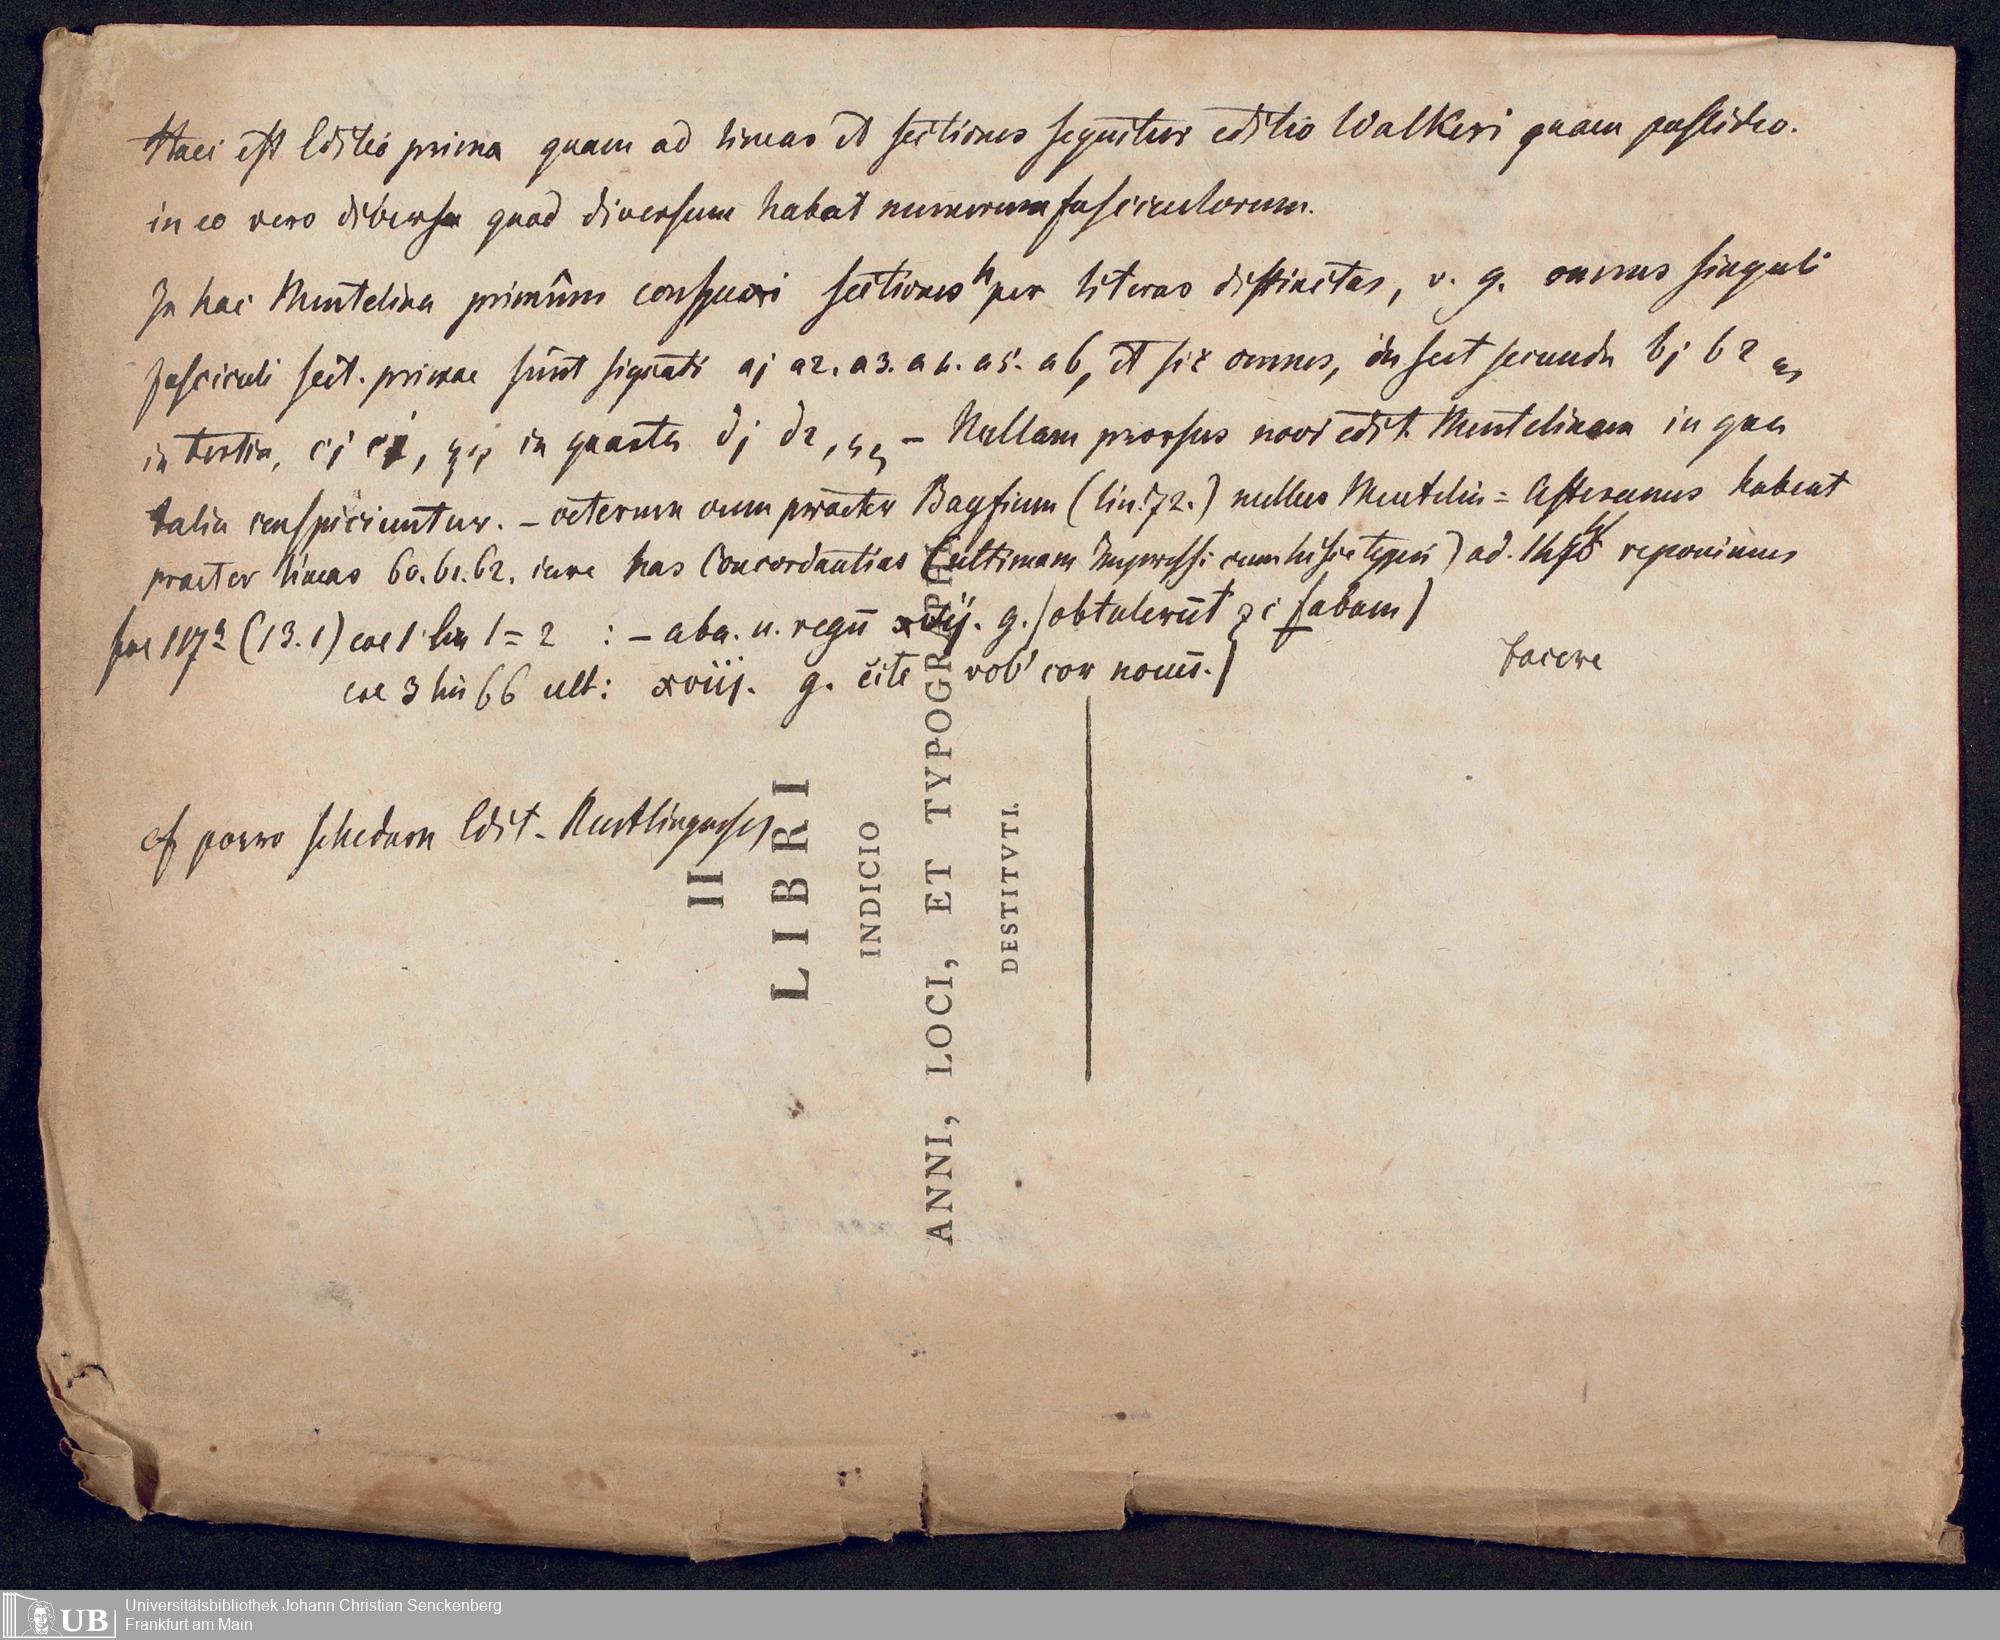 Haec est Editio prima quam ad lineas et sectiones sequitur editio Walkeri quam possideo.
in eo vero diversa quod diversum habet numerum fasciculorum.
In hac Mentelina primum conspexi sectiones per literas distinctas, v. g. omnes singuli
fasciculi sect. primae sunt signati aj a2. a3. a4. a5. a6, et sic omnes, in sect secunda bj b2
in tertia, cj in quarta dj d2, – Nullam prorsus novi edit. Mentelinam in qua
talia conspiciuntur. – ceterum cum praeter (lin. 72.) nullus Mentelin= Astexanus habeat
praeter lineas 60. 61. 62. iure has Concordantias (ultimam Impress: cum hisce typis) ad. reponimus
(13.1) col 1 lin 1=2 : – aba. u. regū xviij. g.) obtulerūt faban)
col 3 lin 66 ult: xviij. g. vob' cor
tacere
cf porro schedam Edit. Reutlingensis
II
LIBRI
INDICIO
ANNI, LOCI, ET TYPOGRAPHI
DESTITVTI.
UB
Universitätsbibliothek Johann Christian Senckenberg
Frankfurt am Main